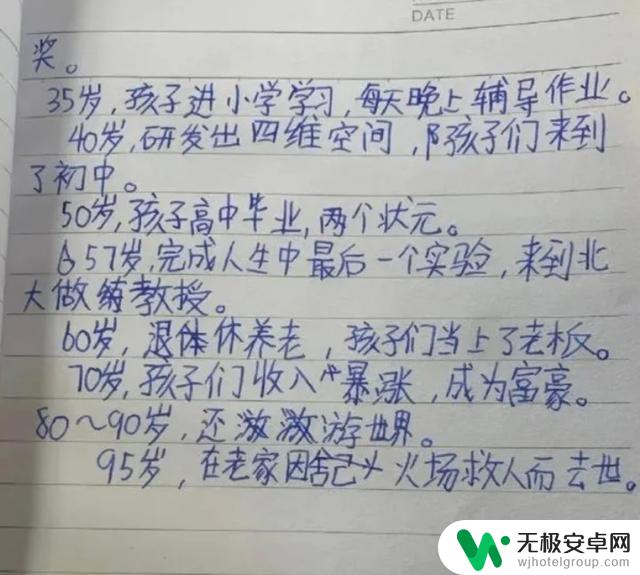 DATE
奖。
35岁，孩子进小学学习，每天晚上辅导作业。
40岁，研发出四维空间，孩子们来到
了初中。
50岁，孩子高中毕业，两个状元。
57岁，完成人生中最后一个实验，来到北
大做教授。
60岁，退休养老，孩子们当上了老板。
70岁，孩子们收入暴涨，成为富豪。
80～90岁，还游世界。
95岁，在老家因火场救人而去世。
无极安卓网
wjhotelgroup.com